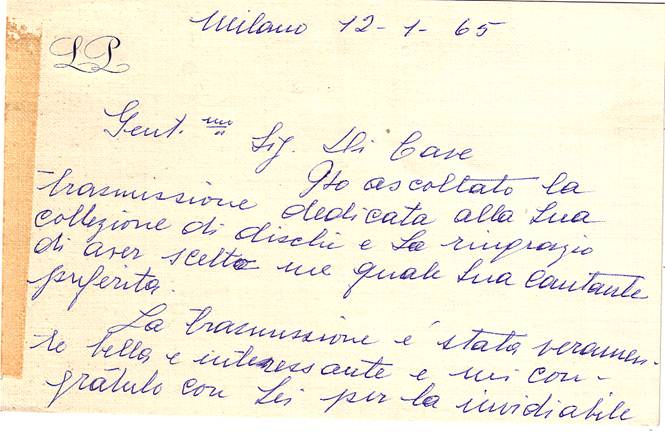 Milano 12-1-65
LP
Gent.mo Sig. Di Cave
Ho ascoltato la
trasmissione dedicata alla Sua
collezione di dischi e La ringrazio
di aver scelto me quale Sua cantante
preferita.
La trasmissione é stata veramen-
te bella e interessante e mi con-
gratulo con Lei per la invidiabile